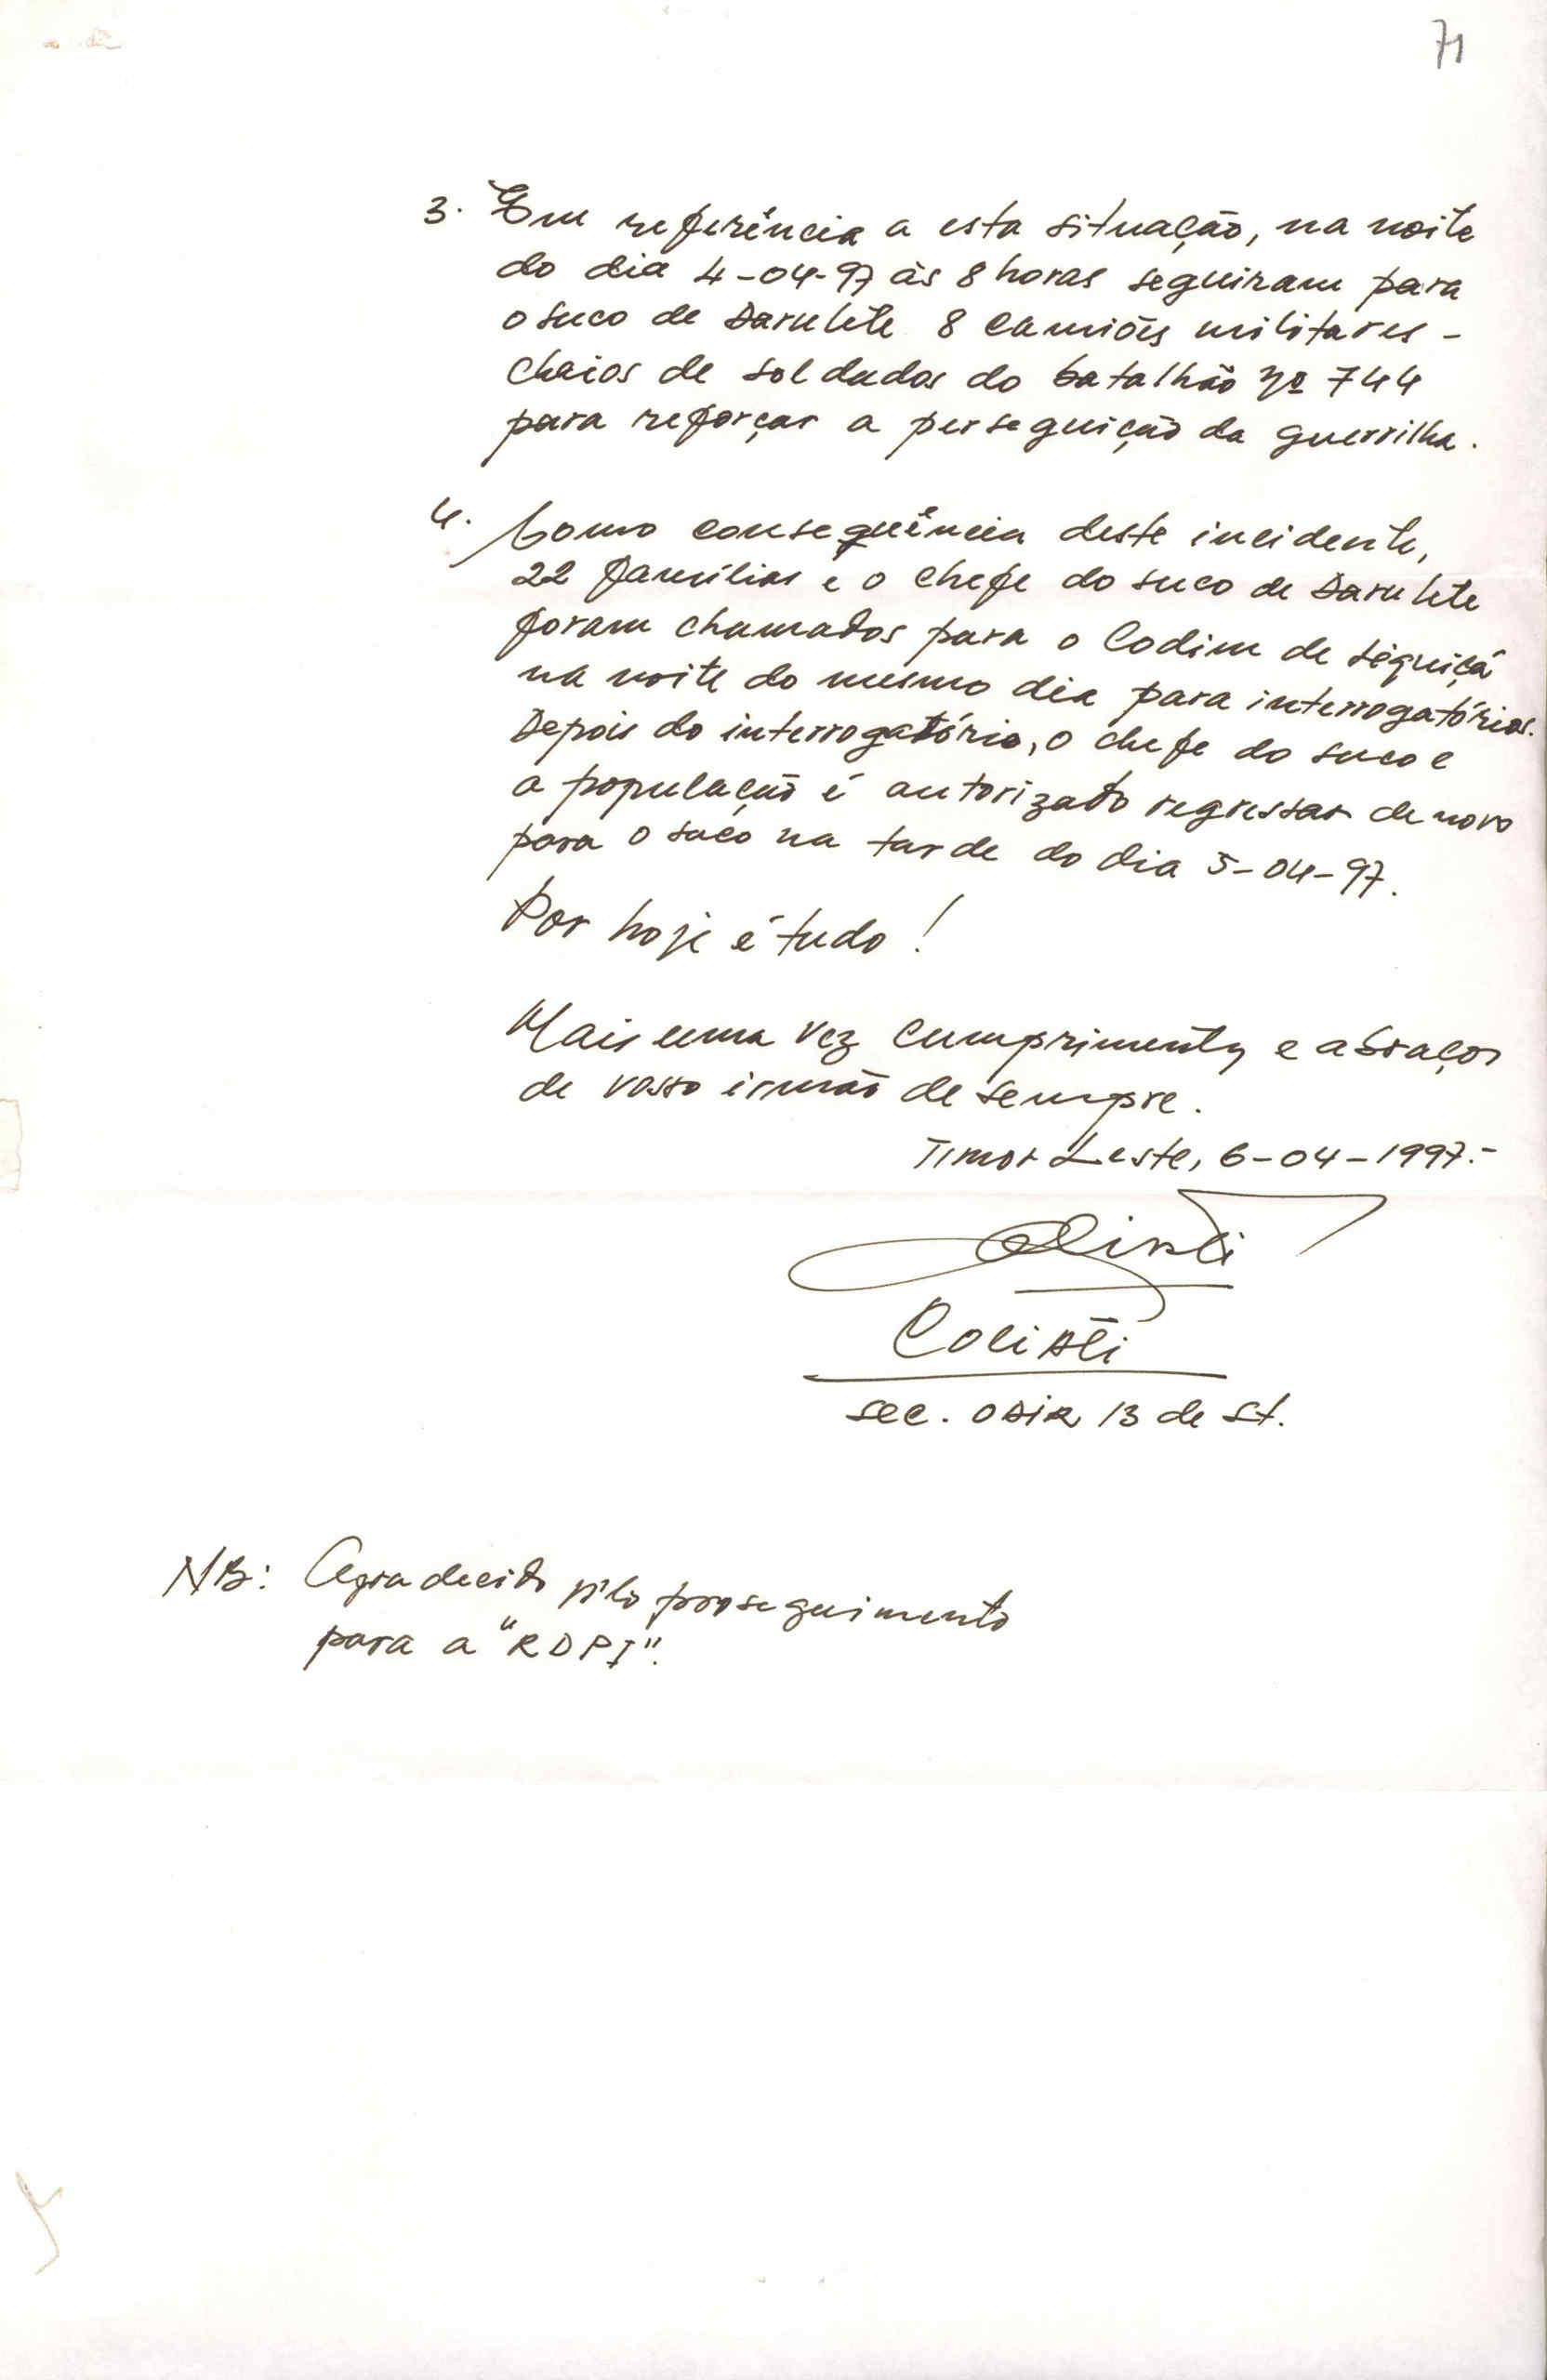 71
3. Em referência a esta situação, na noite
do dia 4-04-97 às 8 horas seguiram para
o suco de Darulete 8 camiões militares -
cheios de soldados do batalhão nº 744
para reforçar a perseguição da guerrilha.
4. Como consequência deste incidente,
22 famílias e o chefe do suco de Darulete
foram chamados para o Codim de Liquiçá
na noite do mesmo dia para interrogatórios.
Depois do interrogatório, o chefe do suco e
a população é autorizado regressar de novo
para o suco na tarde do dia 5-04-97.
Por hoje é tudo!
Mais uma vez cumprimentos e abraços
de vosso irmão de sempre.
Timor Leste, 6-04-1997.-
sec. ODIR 13 de St.
NB: Agradecido p'lo prosseguimento
para a "RDPI".